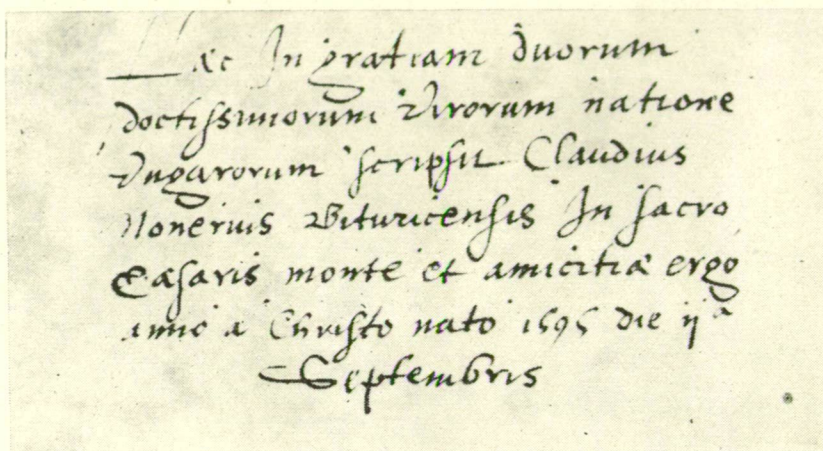 Hæc In gratiam duorum
doctissimorum Virorum natione
Vngarorum scripsit Claudius
Nonerius Bituricensis In sacro
Cæsaris monte et amicitiæ ergo
anno a Christo nato 1595 die ij^a
Septembris